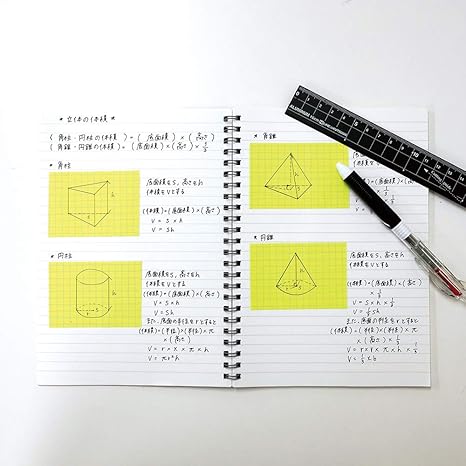 * 立体の体積 *
( 角柱・円柱の体積 ) = ( 底面積 ) × ( 高さ )
( 角錐・円錐の体積 ) = ( 底面積 ) × ( 高さ ) × 1/3
* 角柱
h
S
底面積をS、高さをh
体積をVとする
(体積)=(底面積)×(高さ)
V = S × h
V = Sh
* 円柱
h
底面積をS、高さをh
体積をVとする
(体積)=(底面積)×(高さ)
V = S × h
V = Sh
また、底面の半径をrとすると
(体積)=(半径)×(半径)×π
×(高さ)
V = r × r × π × h
V = πr²h
* 角錐
h
底面積を
体積をVと
(体積)=
× 1/3
V = S ×
V = 1/3
* 円錐
h
底面積をS、高さをh
体積をVとする
(体積)=(底面積)×(高さ)
× 1/3
V = S × h × 1/3
V = 1/3 Sh
また、底面の半径をrとすると
(体積)=(半径)×(半径)×π
×(高さ)× 1/3
V = r × r × π × h × 1/3